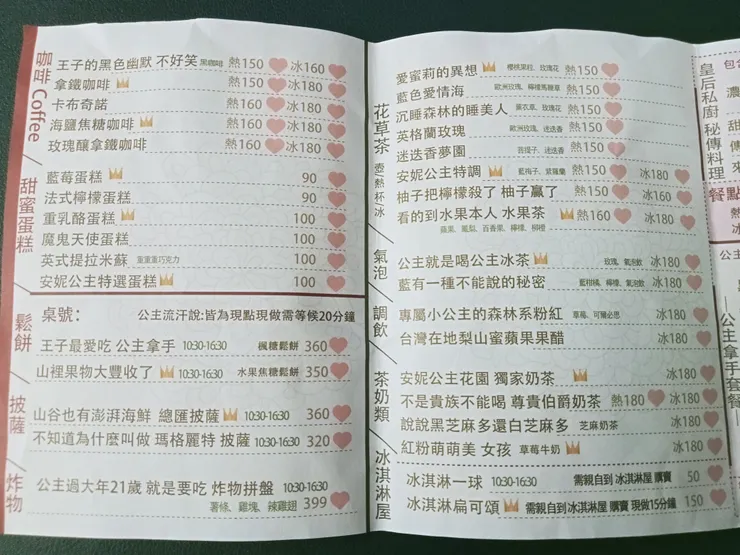 咖啡 Coffee
王子的黑色幽默 不好笑 黑咖啡 熱150 冰160
拿鐵咖啡 熱150 冰180
卡布奇諾 熱160 冰180
海鹽焦糖咖啡 熱160 冰180
玫瑰釀拿鐵咖啡 熱160 冰180
甜蜜蛋糕
藍莓蛋糕 90
法式檸檬蛋糕 90
重乳酪蛋糕 100
魔鬼天使蛋糕 100
英式提拉米蘇 重重重巧克力 100
安妮公主特選蛋糕 100
桌號: 公主流汗說:皆為現點現做需等候20分鐘
鬆餅
王子最愛吃 公主拿手 10:30-16:30 楓糖鬆餅 360
山裡果物大豐收了 10:30-16:30 水果焦糖鬆餅 350
披薩
山谷也有澎湃海鮮 總匯披薩 10:30-16:30 360
不知道為什麼叫做 瑪格麗特 披薩 10:30-16:30 320
炸物
公主過大年21歲 就是要吃 炸物拼盤 10:30-16:30
薯條、雞塊、辣雞翅 399
花草茶 壺/熱 杯/冰
愛蜜莉的異想 櫻桃果粒、玫瑰花 熱150
藍色愛情海 歐洲玫瑰、檸檬馬鞭草 熱150
沉睡森林的睡美人 薰衣草、玫瑰花 熱150
英格蘭玫瑰 歐洲玫瑰、迷迭香 熱150
迷迭香夢園 菩提子、迷迭香 熱150
安妮公主特調 藍梅子、紫羅蘭 熱150 冰180
柚子把檸檬殺了 柚子贏了 熱150 冰160
看的到水果本人 水果茶 熱160 冰180
蘋果、鳳梨、百香果、檸檬、柳橙
氣泡
公主就是喝公主冰茶 玫瑰、氣泡飲 冰180
藍有一種不能說的秘密 藍柑橘、檸檬、氣泡飲 冰180
調飲
專屬小公主的森林系粉紅 草莓、可爾必思 冰180
台灣在地梨山蜜蘋果果醋 冰180
茶奶類
安妮公主花園 獨家奶茶 冰180
不是貴族不能喝 尊貴伯爵奶茶 熱180 冰180
說說黑芝麻多還白芝麻多 芝麻奶茶 冰180
紅粉萌萌美 女孩 草莓牛奶 冰180
冰淇淋屋
冰淇淋一球 10:30-16:30 需親自到 冰淇淋屋 購買 50
冰淇淋扁可頌 需親自到 冰淇淋屋 購買 現做15分鐘 150
皇后私廚 秘傳料理
餐點
公主拿手套餐